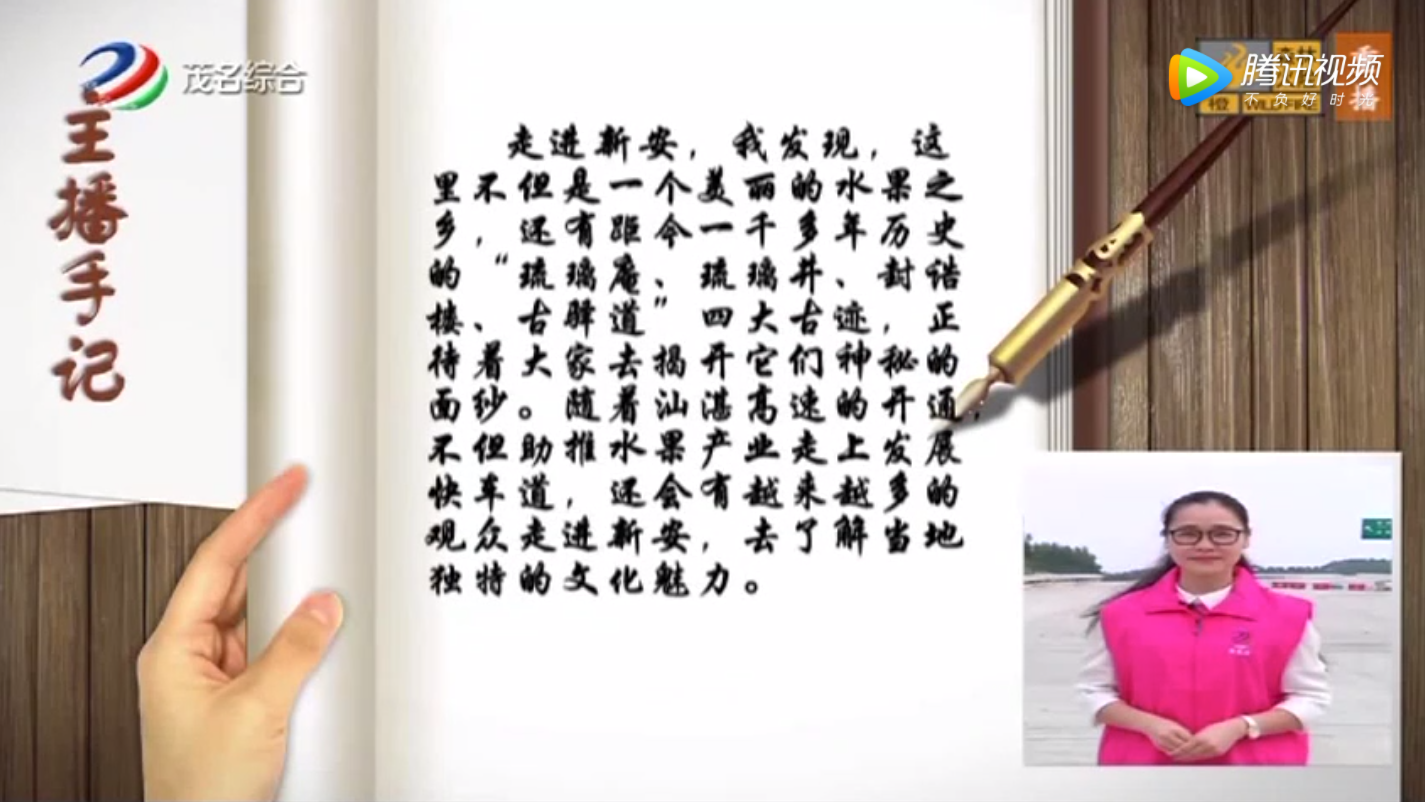 茂名综合
主播手记
腾讯视频
不负好时光
重播
走进新安，我发现，这
里不但是一个美丽的水果之
乡，还有距今一千多年历史
的“琉璃庵、琉璃井、封诰
楼、古驿道”四大古迹，正
待着大家去揭开它们神秘的
面纱。随着汕湛高速的开通，
不但助推水果产业走上发展
快车道，还会有越来越多的
观众走进新安，去了解当地
独特的文化魅力。